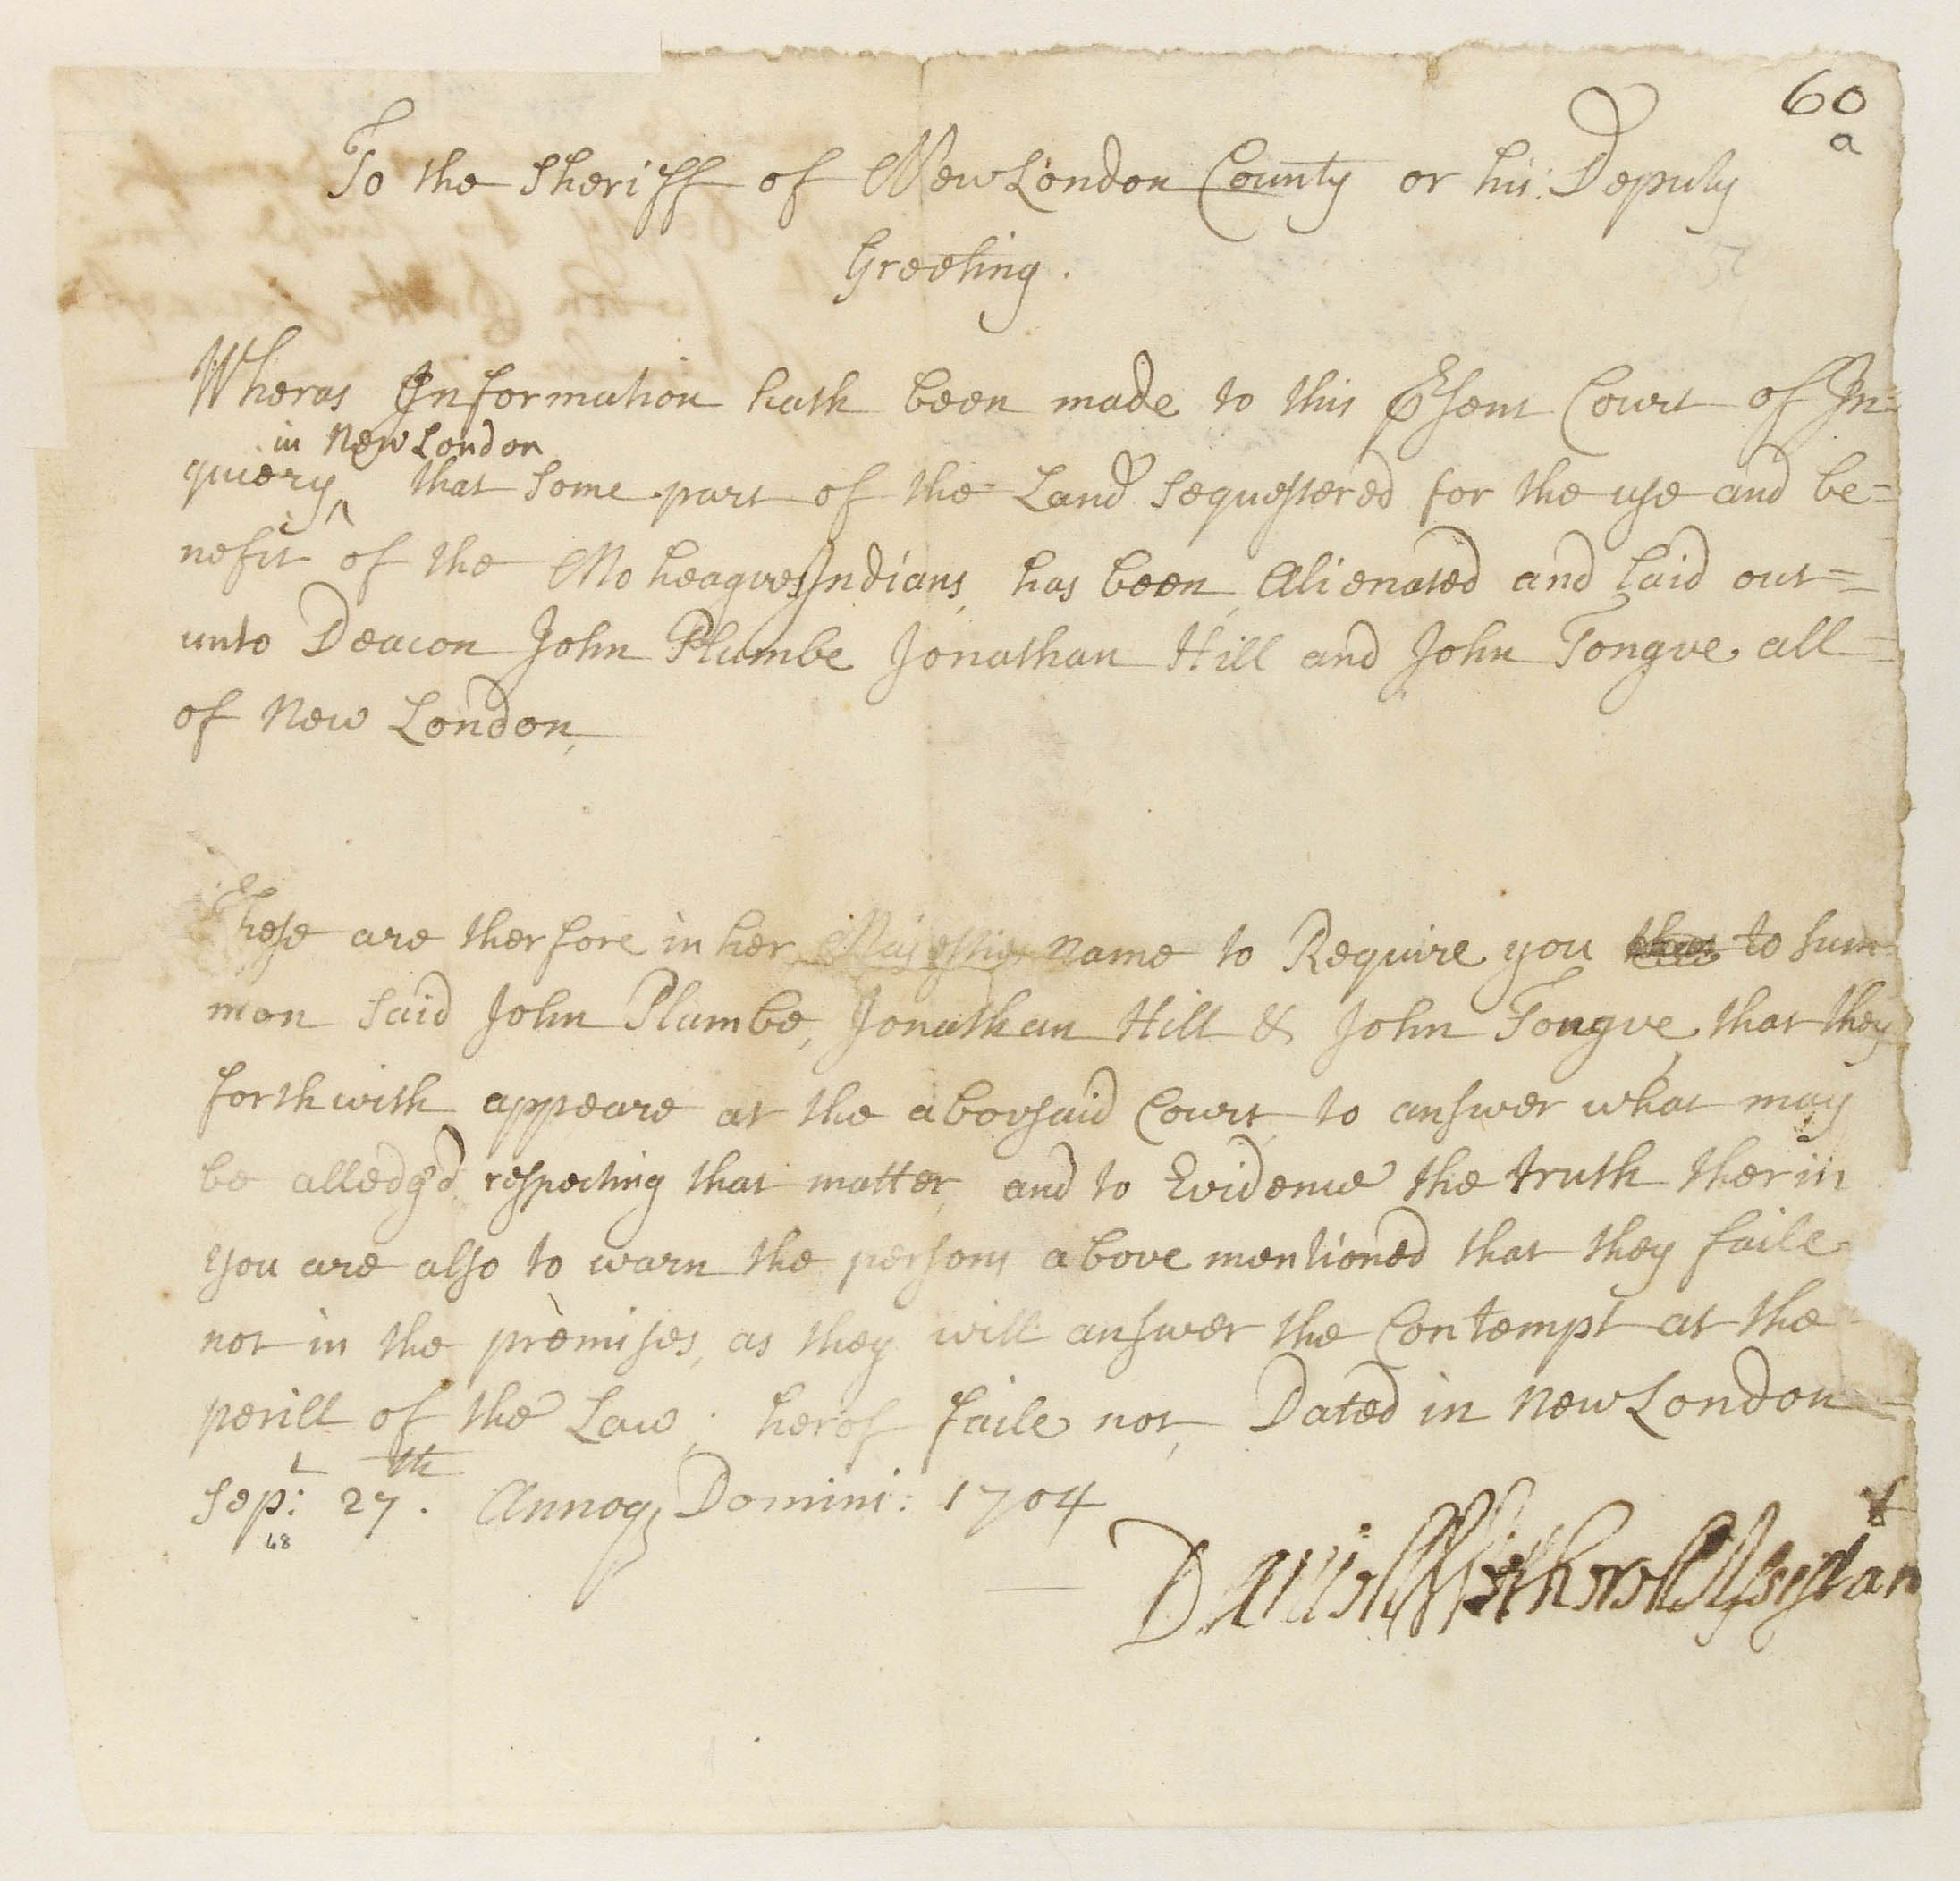 60
a
To the Sheriff of New London County or his Deputy
Greeting.
Wheras Information hath been made to this Psent Court of In=
in New London
quiery ^ that some part of the Land sequestered for the use and be=
nefit of the Moheagves Indians, has been, Alienated and laid out=
unto Deacon John Plumbe Jonathan Hill and John Tongve all=
of New London,
These are therfore in her Majesties name to Require you to sum
mon said John Plumbe, Jonathan Hill & John Tongve, that they
forthwith appeare at the abovsaid Court, to answer what may
be alledg'd respecting that matter, and to Evidence the truth therin
you are also to warn the persons above mentioned that they faile
not in the premises, as they will answer the Contempt at the
perill of the Law; herof faile not, Dated in New London=
Sept: 27th. Annoq Domini: 1704
48
Daniell Wetherell Assistant